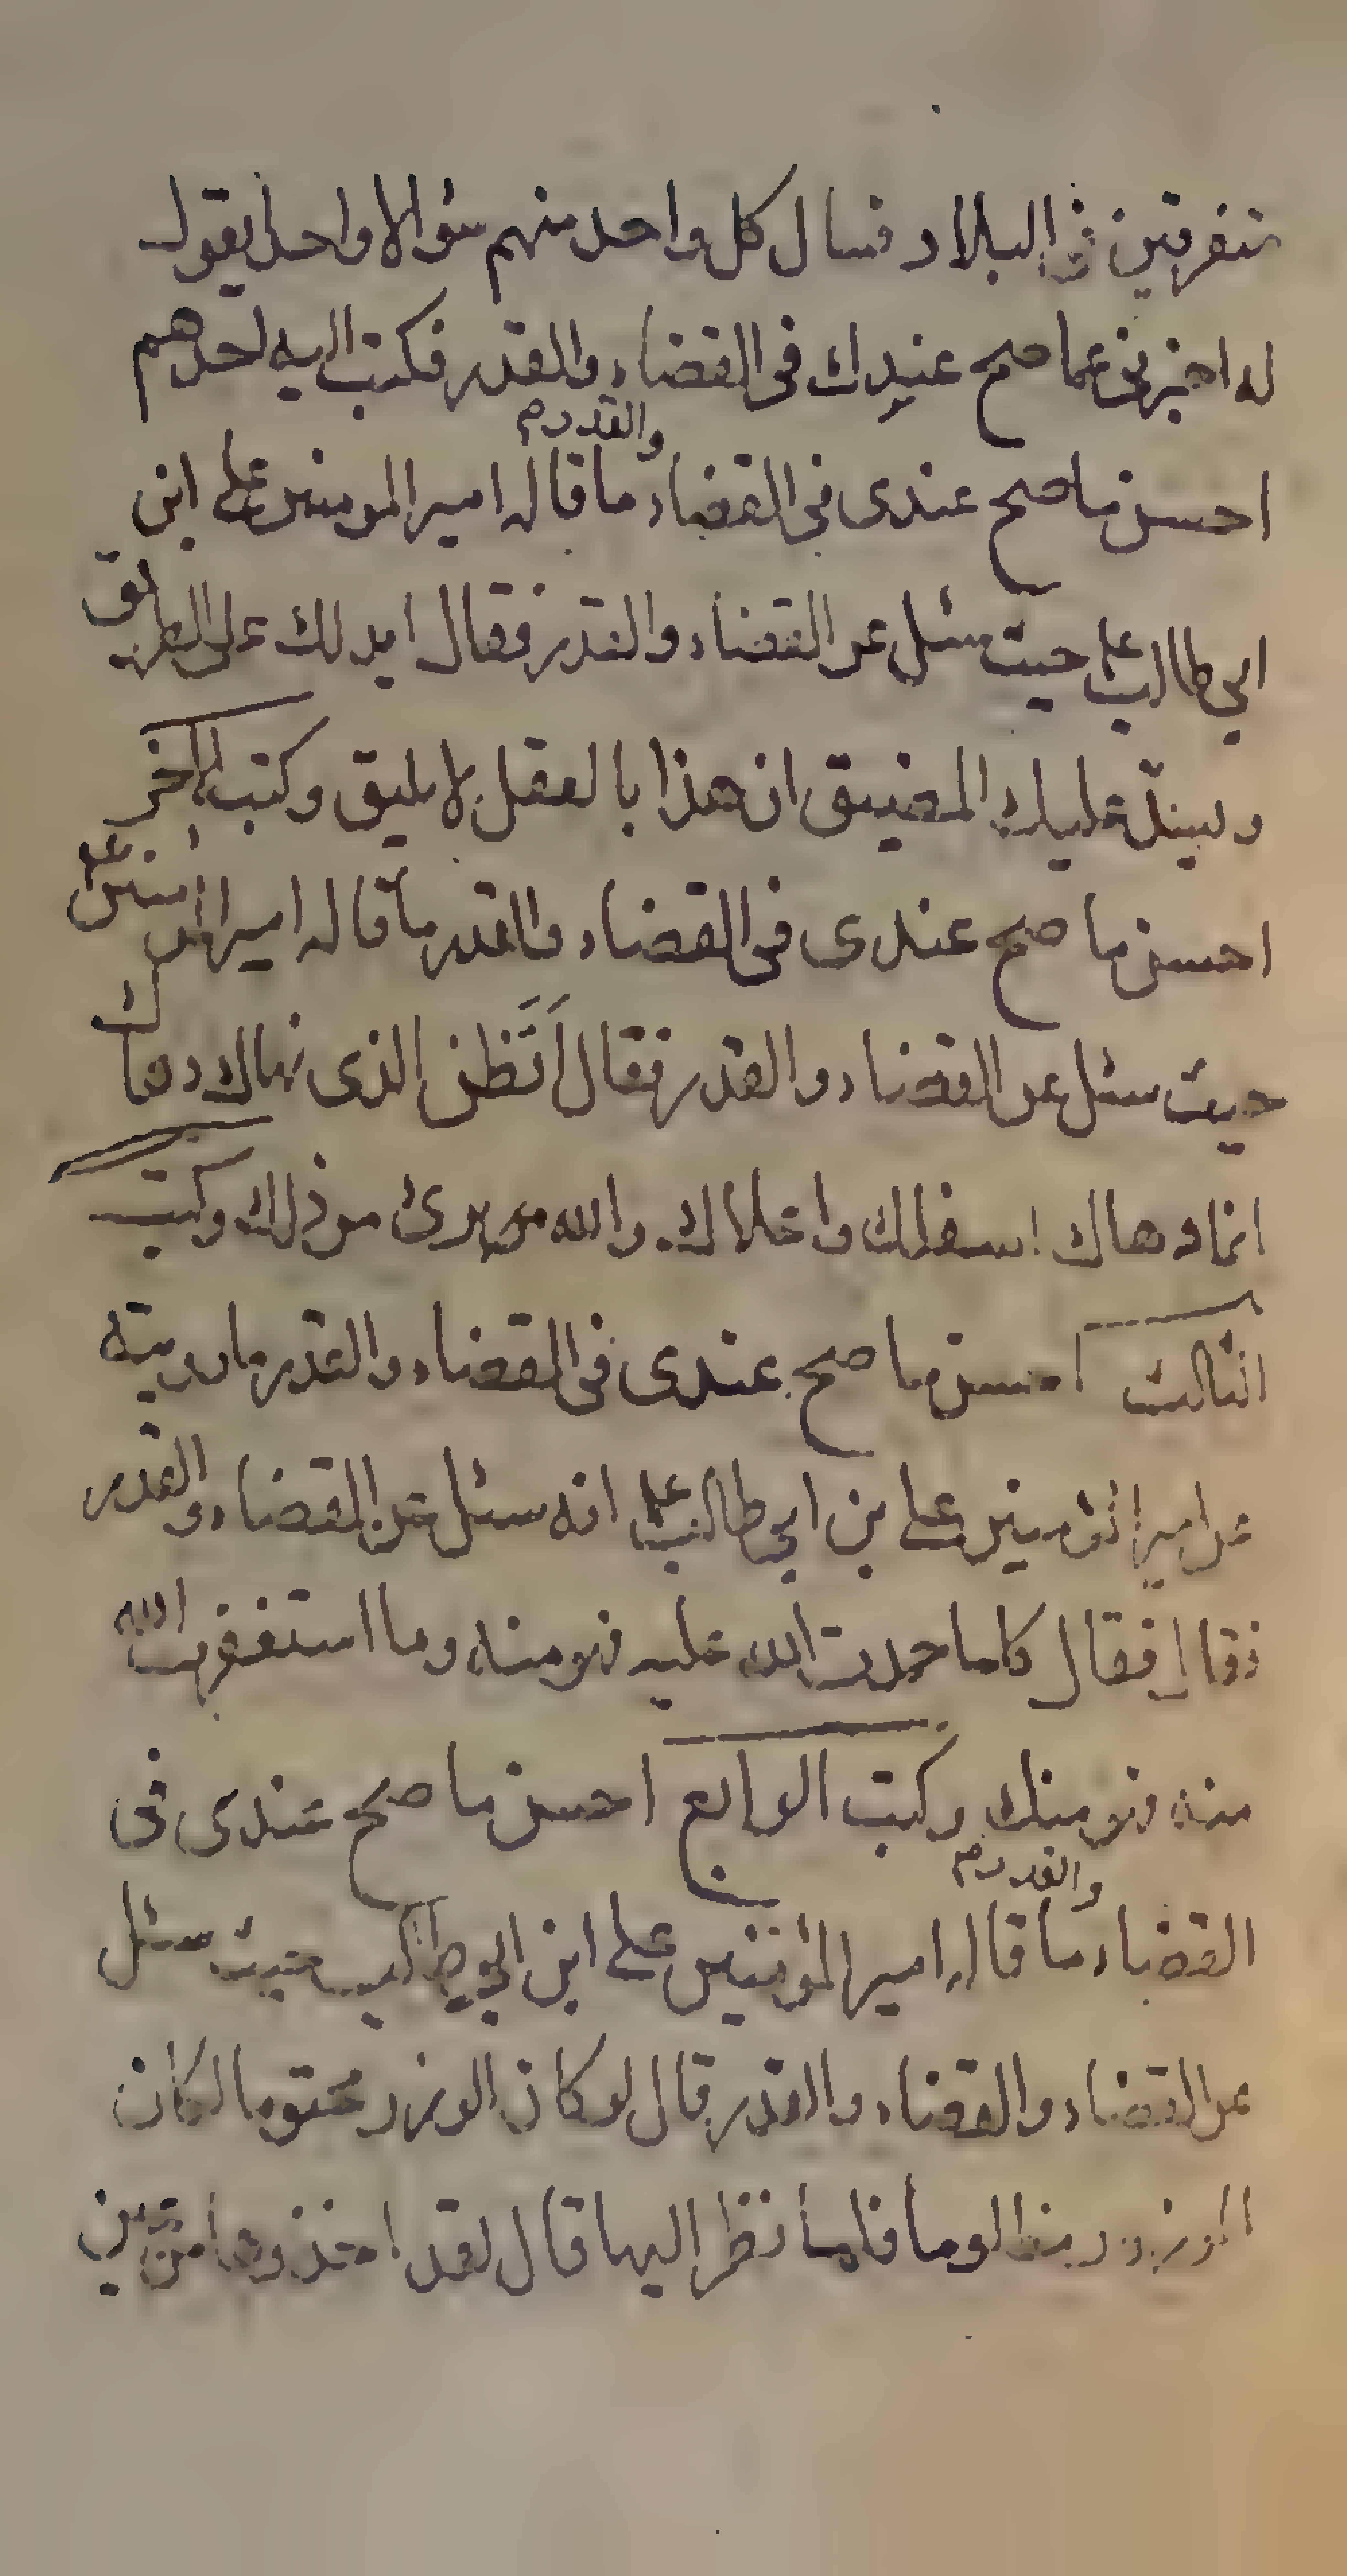 متفرقين في البلاد فسال كل واحد منهم سؤالا واحدا يقول
له اخبرنى عما صح عندك فى القضاء والقدر فكتب اليه احدهم
والقدرم
احسن ما صح عندى فى القضاء ما قاله امير المومنين على ابن
ابي طالب ع حيث سئل عن القضاء والقدر فقال ايدلك على الطريق
ويسدّ عليك المضيق ان هذا بالعقل لا يليق وكتب الاخر
احسن ما صح عندى فى القضاء والقدر ما قاله امير المؤمنين ع
حيث سئل عن القضاء والقدر فقال اَتَظن الذى نهاك دهاك
انما دهاك اسفلك واعلاك والله برئ من ذلك وكتب
الثالث احسن ما صح عندى فى القضاء والقدر ما رويته
عن امير المؤمنين على بن ابي طالب ع انه سئل عن القضاء والقدر
فقال فقال كلما حمدت الله عليه فهو منه وما استغفرت الله
منه فهو منك وكتب الرابع احسن ما صح عندى فى
والقدرم
القضاء ما قاله امير المؤمنين على ابن ابي طالب حيث سئل
عن القضاء والقضاء والقدر قال لو كان الوزر محتوما لكان
الموزور مظلوما فلما نظر اليها قال لقد اخذوها من عين